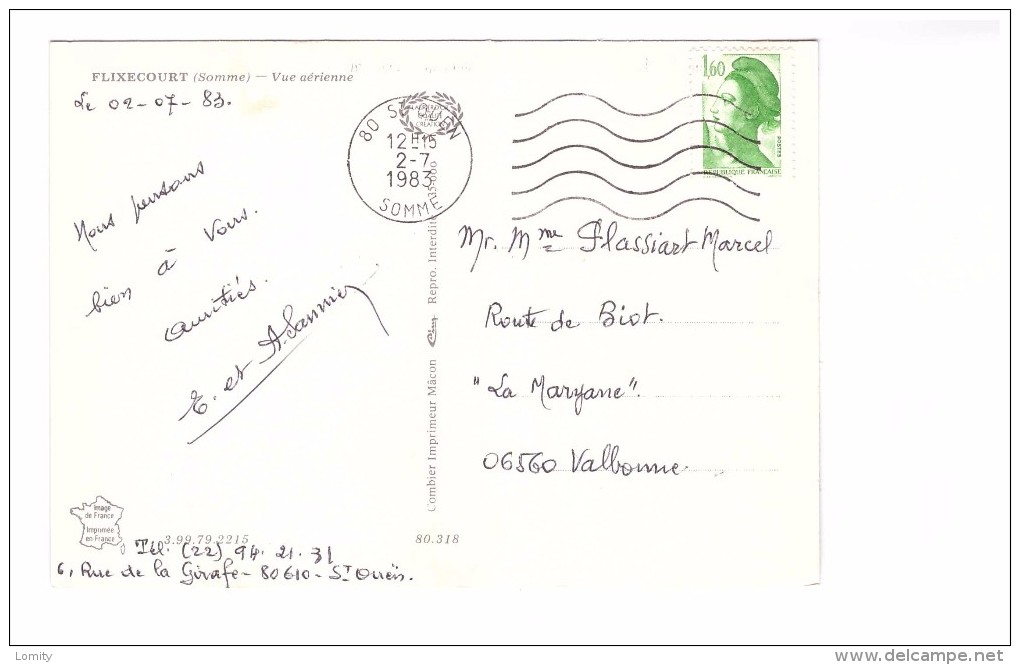 FLIXECOURT (Somme) — Vue aérienne
Le 02-07-83.
Nous pensons
bien à Vous.
amitiés.
E. et A. Sannier
80 ST OUEN
12H15
2-7
1983
SOMME
1,60
POSTES
REPUBLIQUE FRANÇAISE
Mr. Mme Flassiart Marcel
Route de Biot.
"La Maryane".
06560 Valbonne.
Combier Imprimeur Mâcon Cim Repro. Interdite
Image
de France
Imprimée
en France
3.99.79.2215
80.318
Tél. (22) 94.21.31
6, Rue de la Girafe - 80610 - St Ouën.
Lomity
delcampe.net